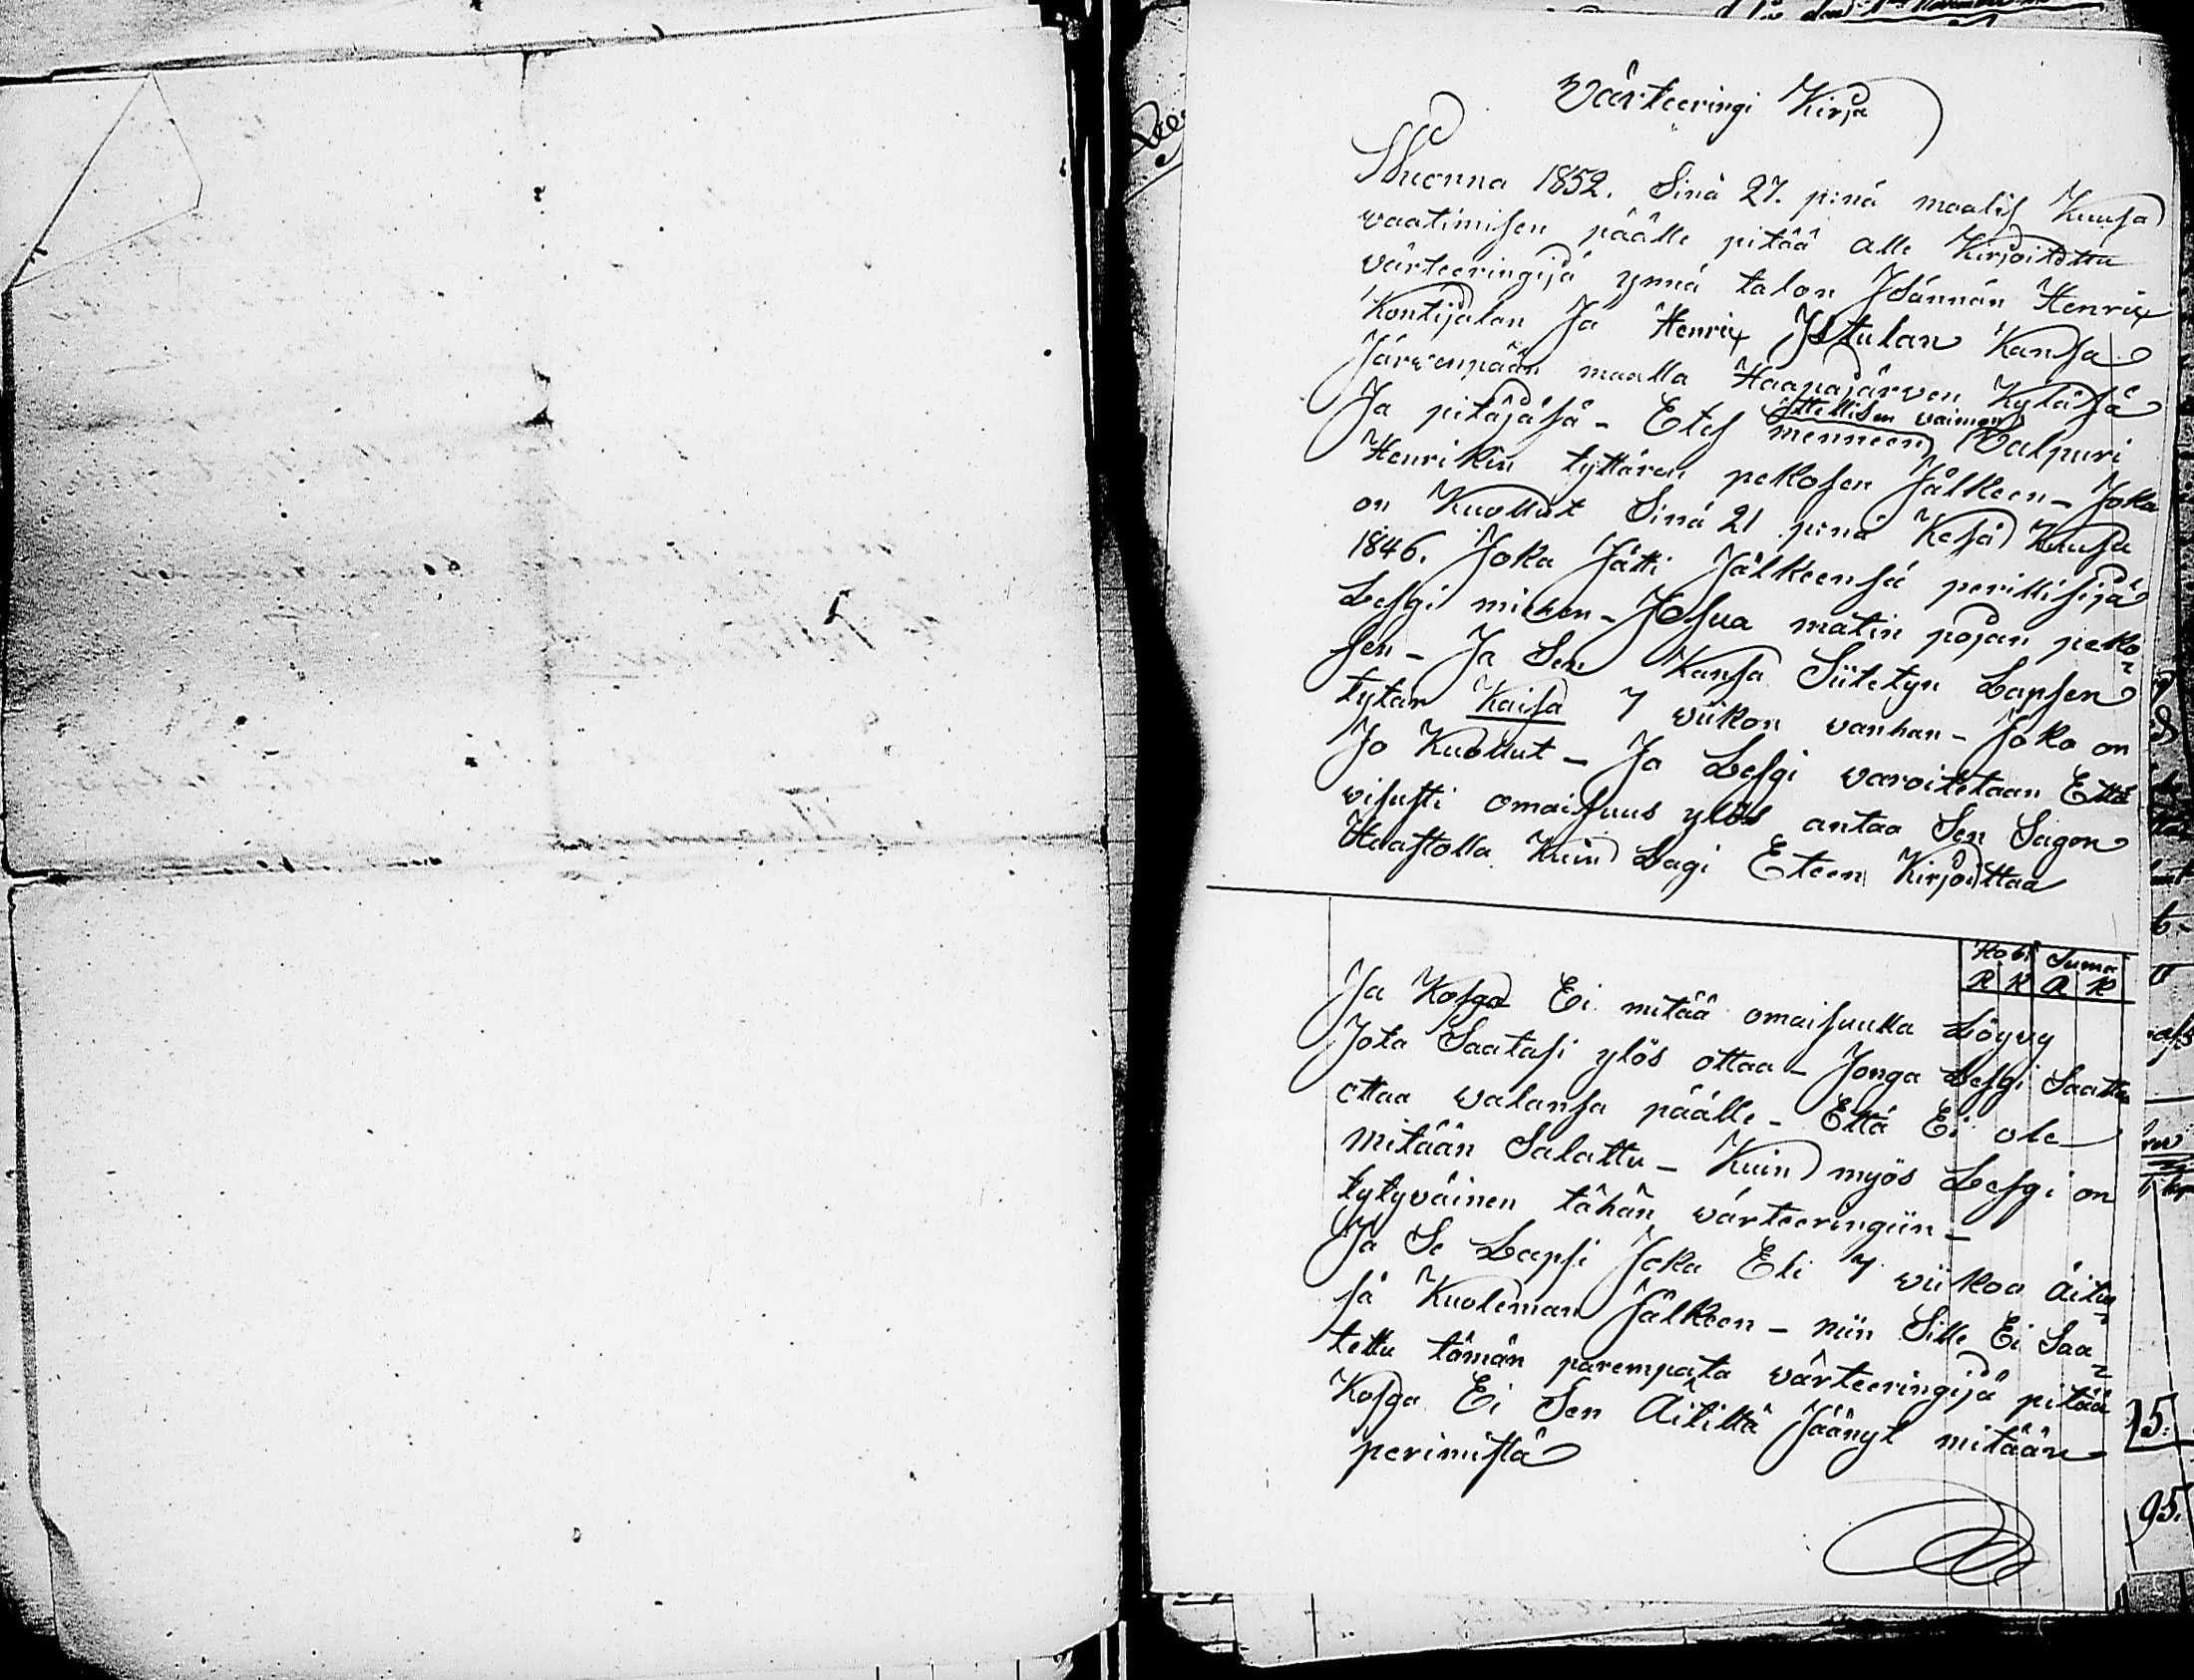 Värteeringi Kirja
Wuonna 1852. Sinä 27. p:nä maalis Kuusa
waatimisen päälle pitää alle Kirjoitettu
värteeringijä ynnä talon Isännän Henrix
Kontijalan Ja Henrix Istulan Kansa
Järwenpään maalla Haapajärwen Kyläsä
Ittellisen vaimon
Ja pitäjäsä - Etes menneen Valpuri
Henrikin tyttären pekosen Jälkeen - Joka
on Kuollut Sinä 21 p:nä Kesä Kuusa
1846. Joka Jätti Jälkeensä perillisijä
Lesgi miehen - Josua matin pojan peko-
sen - Ja Sen Kansa Siitetyn Lapsen
tytär Kaisa 7 wiikon vanhan - Joka on
Jo Kuollut - Ja Lesgi varoitetaan Että
visusti omaisuus ylös antaa Sen Sagon
Haastolla Kuin Lagi Eteen Kirjoittaa
Hobi Suma
R K R K
Ja Kosga Ei mitää omaisuutta Löyvy
Jota Saatasi ylös ottaa - Jonga Lesgi Saattaa
ottaa walansa päälle - Että Ei ole
mitään Salattu - Kuin myös Lesgi on
tytyväinen tähän wärteeringiin -
Ja Se Lapsi Joka Eli 7 wiikoa äitin-
sä Kuoleman Jälkeen - niin Sille Ei Saa-
tettu tämän parempata värteeringijä pitää
Kosga Ei Sen Äitiltä Jäänyt mitään
perimistä